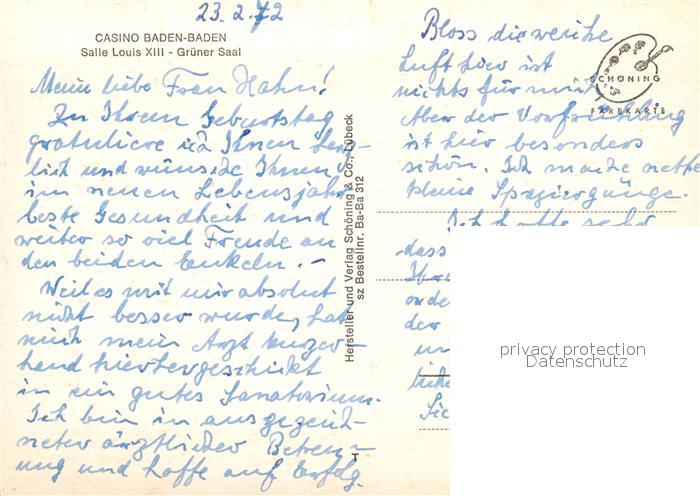 23.2.72
CASINO BADEN-BADEN
Salle Louis XIII - Grüner Saal
Meine liebe Frau Hahn!
Zu Ihrem Geburtstag
gratuliere ich Ihnen herz-
lich und wünsche Ihnen,
im neuen Lebensjahr
beste Gesundheit und
weiter so viel Freude an
den beiden Enkeln. –
Weil es mit mir absolut
nicht besser wurde, hat
mich mein Arzt kurzer-
hand hierhergeschickt
in ein gutes Sanatorium.
Ich bin in ausgezeich-
neter ärztlicher Betreu-
ung und hoffe auf Erfolg.
Hersteller und Verlag Schöning & Co., Lübeck
sz Bestellnr. Ba-Ba 312
T
Bloss die weiche
Luft hier ist
nichts für mich.
Aber der Vorfrühling
ist hier besonders
schön. Ich mache nette
kleine Spaziergänge.
Ich hoffe sehr
dass
oder
der
un
Sie
SCHÖNING
FARBKARTE
privacy protection
Datenschutz